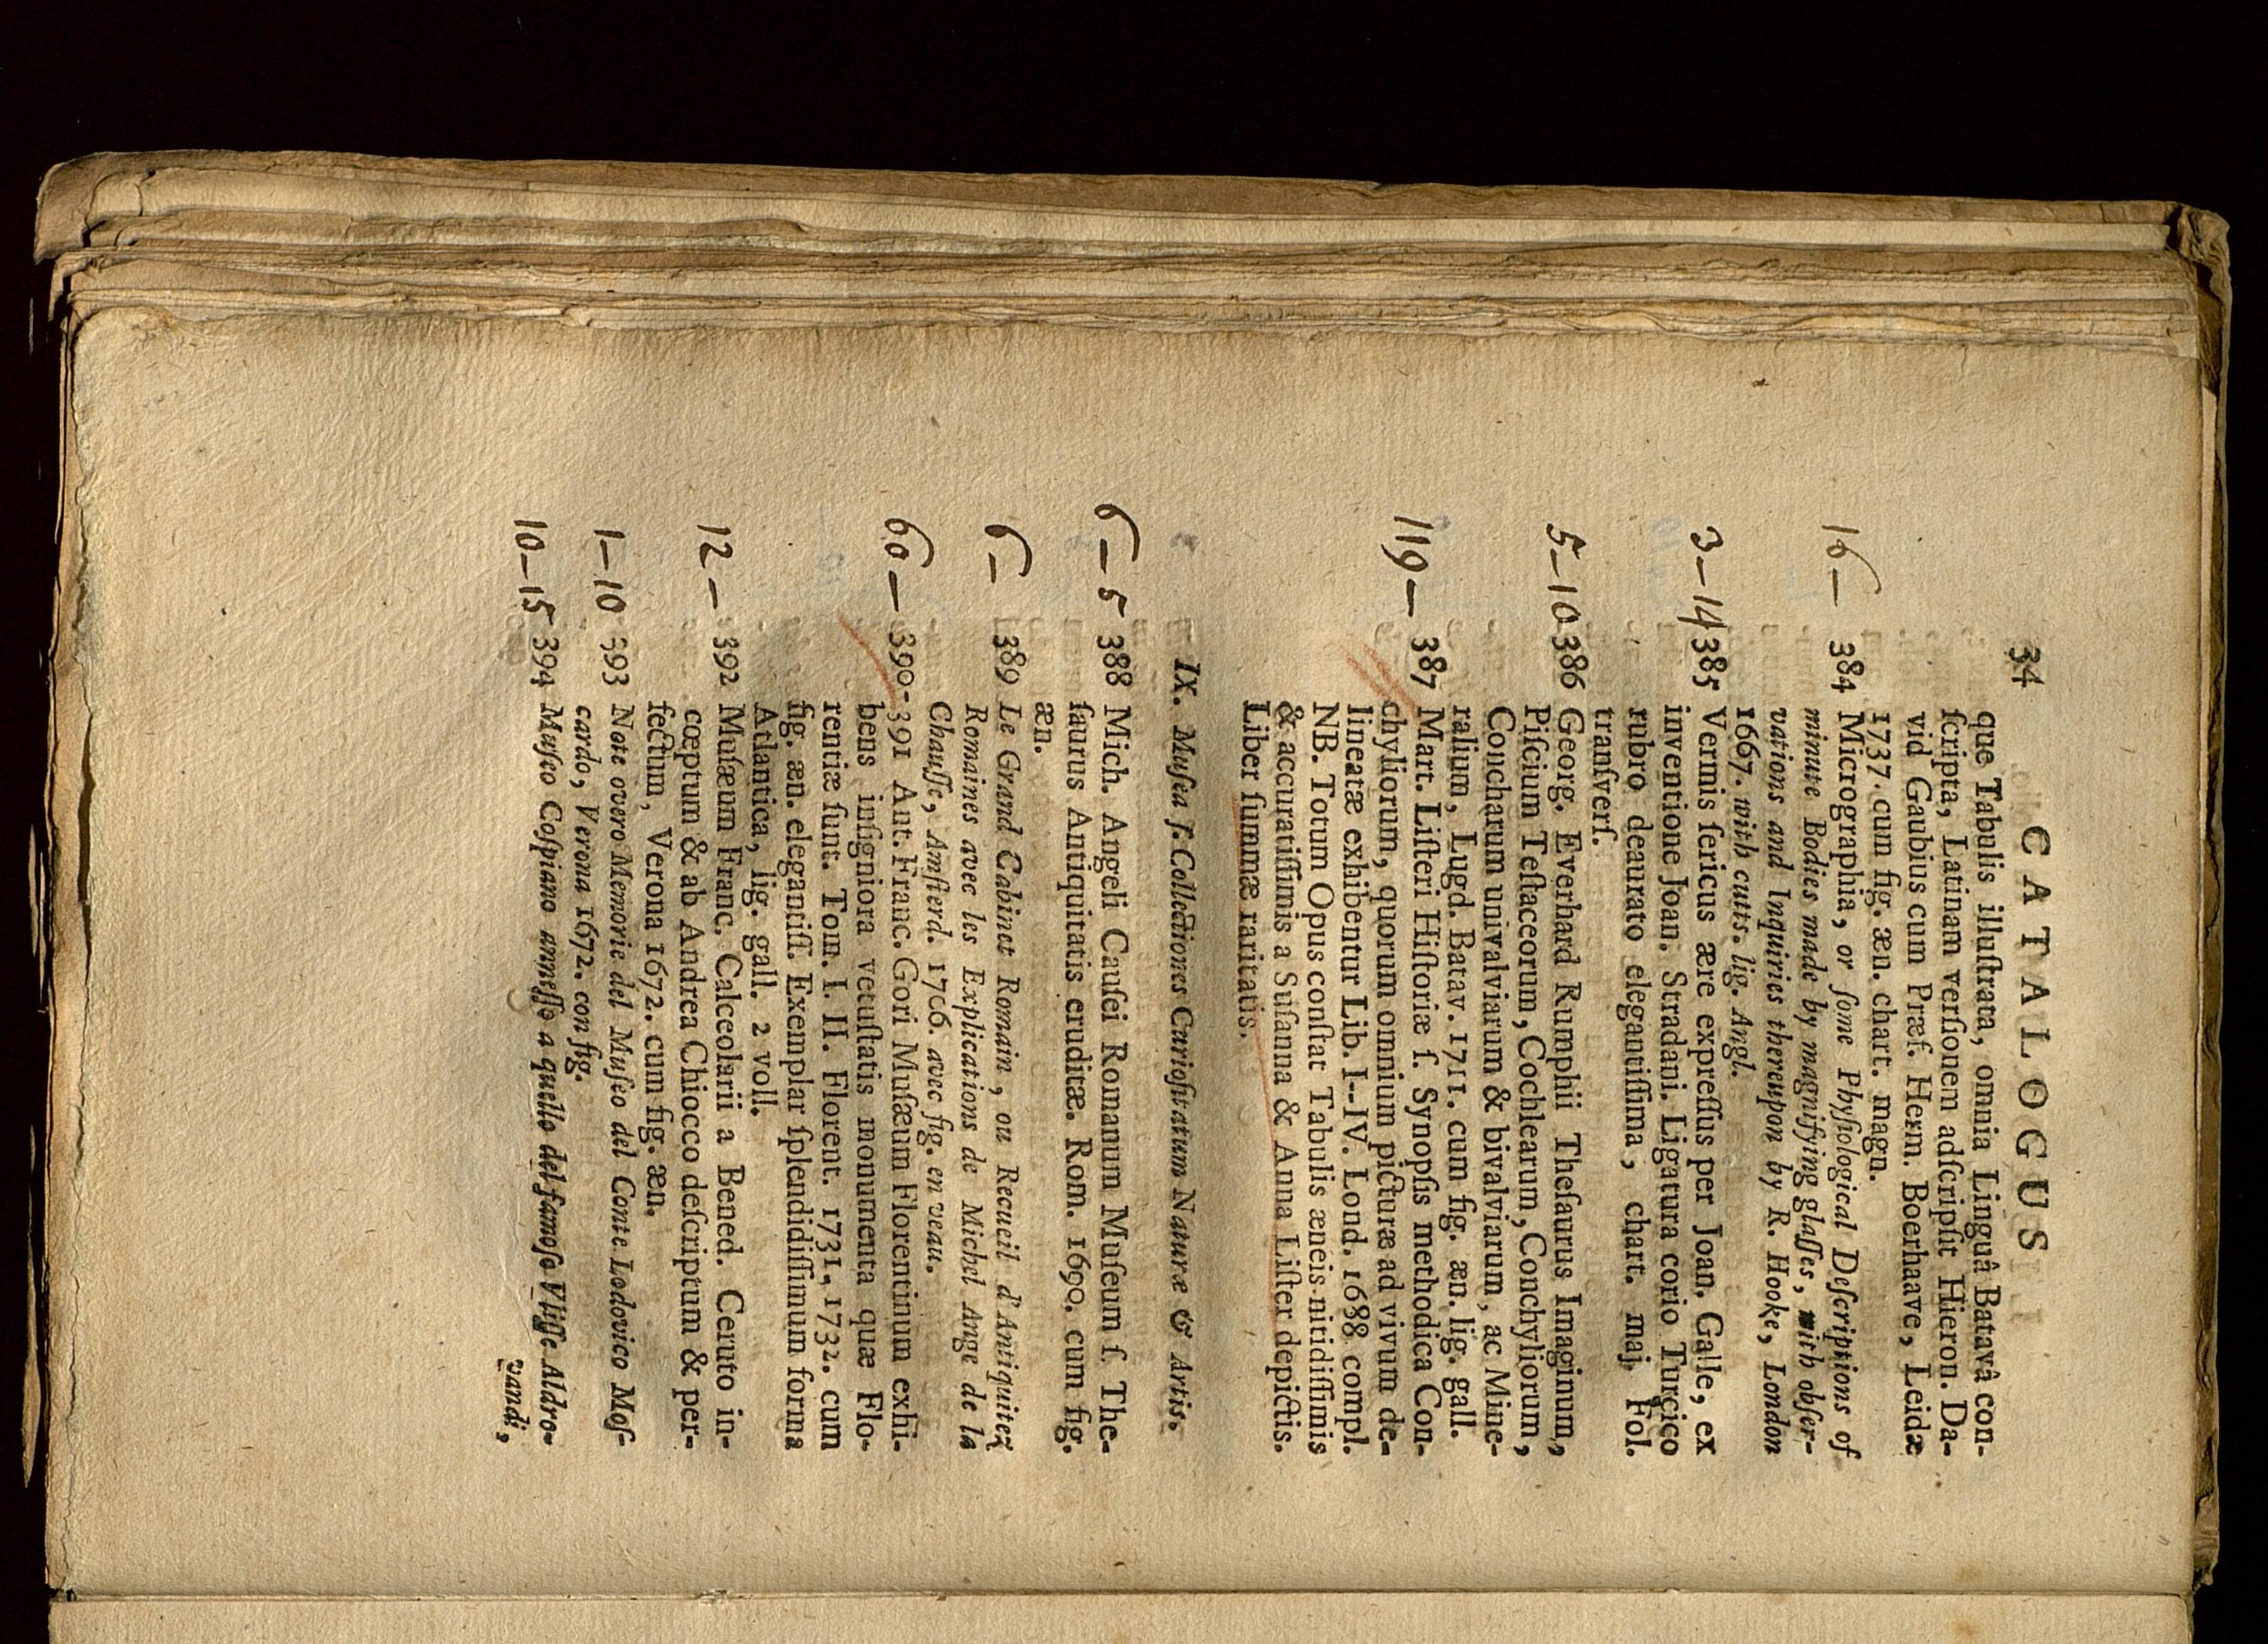 34 CATALOGUS
que Tabulis illuſtrata, omnia Linguâ Batavâ con-
ſcripta, Latinam verſionem adſcripſit Hieron. Da-
vid Gaubius cum Præf. Herm. Boerhaave, Leidæ
1737. cum fig. æn. chart. magn.
16 — 384 Micrographia, or ſome Phyſiological Deſcriptions of
minute Bodies made by magnifying glaſſes, with obſer-
vations and Inquiries thereupon by R. Hooke, London
1667. with cutts. lig. Angl.
3—14 385 Vermis ſericus ære expreſſus per Joan. Galle, ex
inventione Joan. Stradani. Ligatura corio Turcico
rubro deaurato elegantiſſima, chart. maj. Fol.
tranſverſ.
5—10 386 Georg. Everhard Rumphii Theſaurus Imaginum,
Piſcium Teſtaceorum, Cochlearum, Conchyliorum,
Concharum univalviarum & bivalviarum, ac Mine-
ralium, Lugd. Batav. 1711. cum fig. æn. lig. gall.
119 — 387 Mart. Liſteri Hiſtoriæ ſ. Synopſis methodica Con-
chyliorum, quorum omnium picturæ ad vivum de-
lineatæ exhibentur Lib. I--IV. Lond. 1688 compl.
NB. Totum Opus conſtat Tabulis æneis nitidiſſimis
& accuratiſſimis a Suſanna & Anna Liſter depictis.
Liber ſummæ raritatis.
IX. Muſea ſ. Collectiones Curioſitatum Naturæ & Artis.
6—5 388 Mich. Angeli Cauſei Romanum Muſeum ſ. The-
ſaurus Antiquitatis eruditæ. Rom. 1690. cum fig.
æn.
6— 389 Le Grand Cabinet Romain, ou Recueil d'Antiquitez
Romaines avec les Explications de Michel Ange de la
Chauſſe, Amſterd. 1706. avec fig. en veau.
60 — 390-391 Ant. Franc. Gori Muſæum Florentinum exhi-
bens inſigniora vetuſtatis monumenta quæ Flo-
rentiæ ſunt. Tom. I. II. Florent. 1731, 1732. cum
fig. æn. elegantiſſ. Exemplar ſplendidiſſimum forma
Atlantica, lig. gall. 2 voll.
12 — 392 Muſæum Franc. Calceolarii a Bened. Ceruto in-
cœptum & ab Andrea Chiocco deſcriptum & per-
fectum, Verona 1672. cum fig. æn.
1—10 393 Note overo Memorie del Muſeo del Conte Lodovico Moſ-
cardo, Verona 1672. con fig.
10—15 394 Muſeo Coſpiano anneſſo a quello del famoſo Vliſſe Aldro-
vandi,